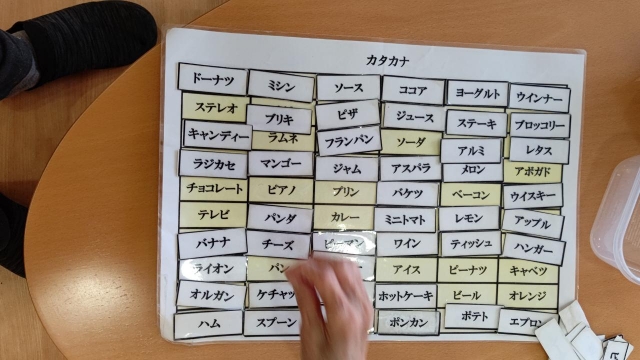 カタカナ
ドーナツ ミシン ソース ココア ヨーグルト ウインナー
ステレオ ブリキ ピザ ジュース ステーキ ブロッコリー
キャンディー ラムネ フランパン ソーダ アルミ レタス
ラジカセ マンゴー ジャム アスパラ メロン アボガド
チョコレート ピアノ プリン バケツ ベーコン ウイスキー
テレビ パンダ カレー ミニトマト レモン アップル
バナナ チーズ ピーマン ワイン ティッシュ ハンガー
ライオン パン アイス ピーナツ キャベツ
オルガン ケチャッ ホットケーキ ビール オレンジ
ハム スプーン ポンカン ポテト エプロン